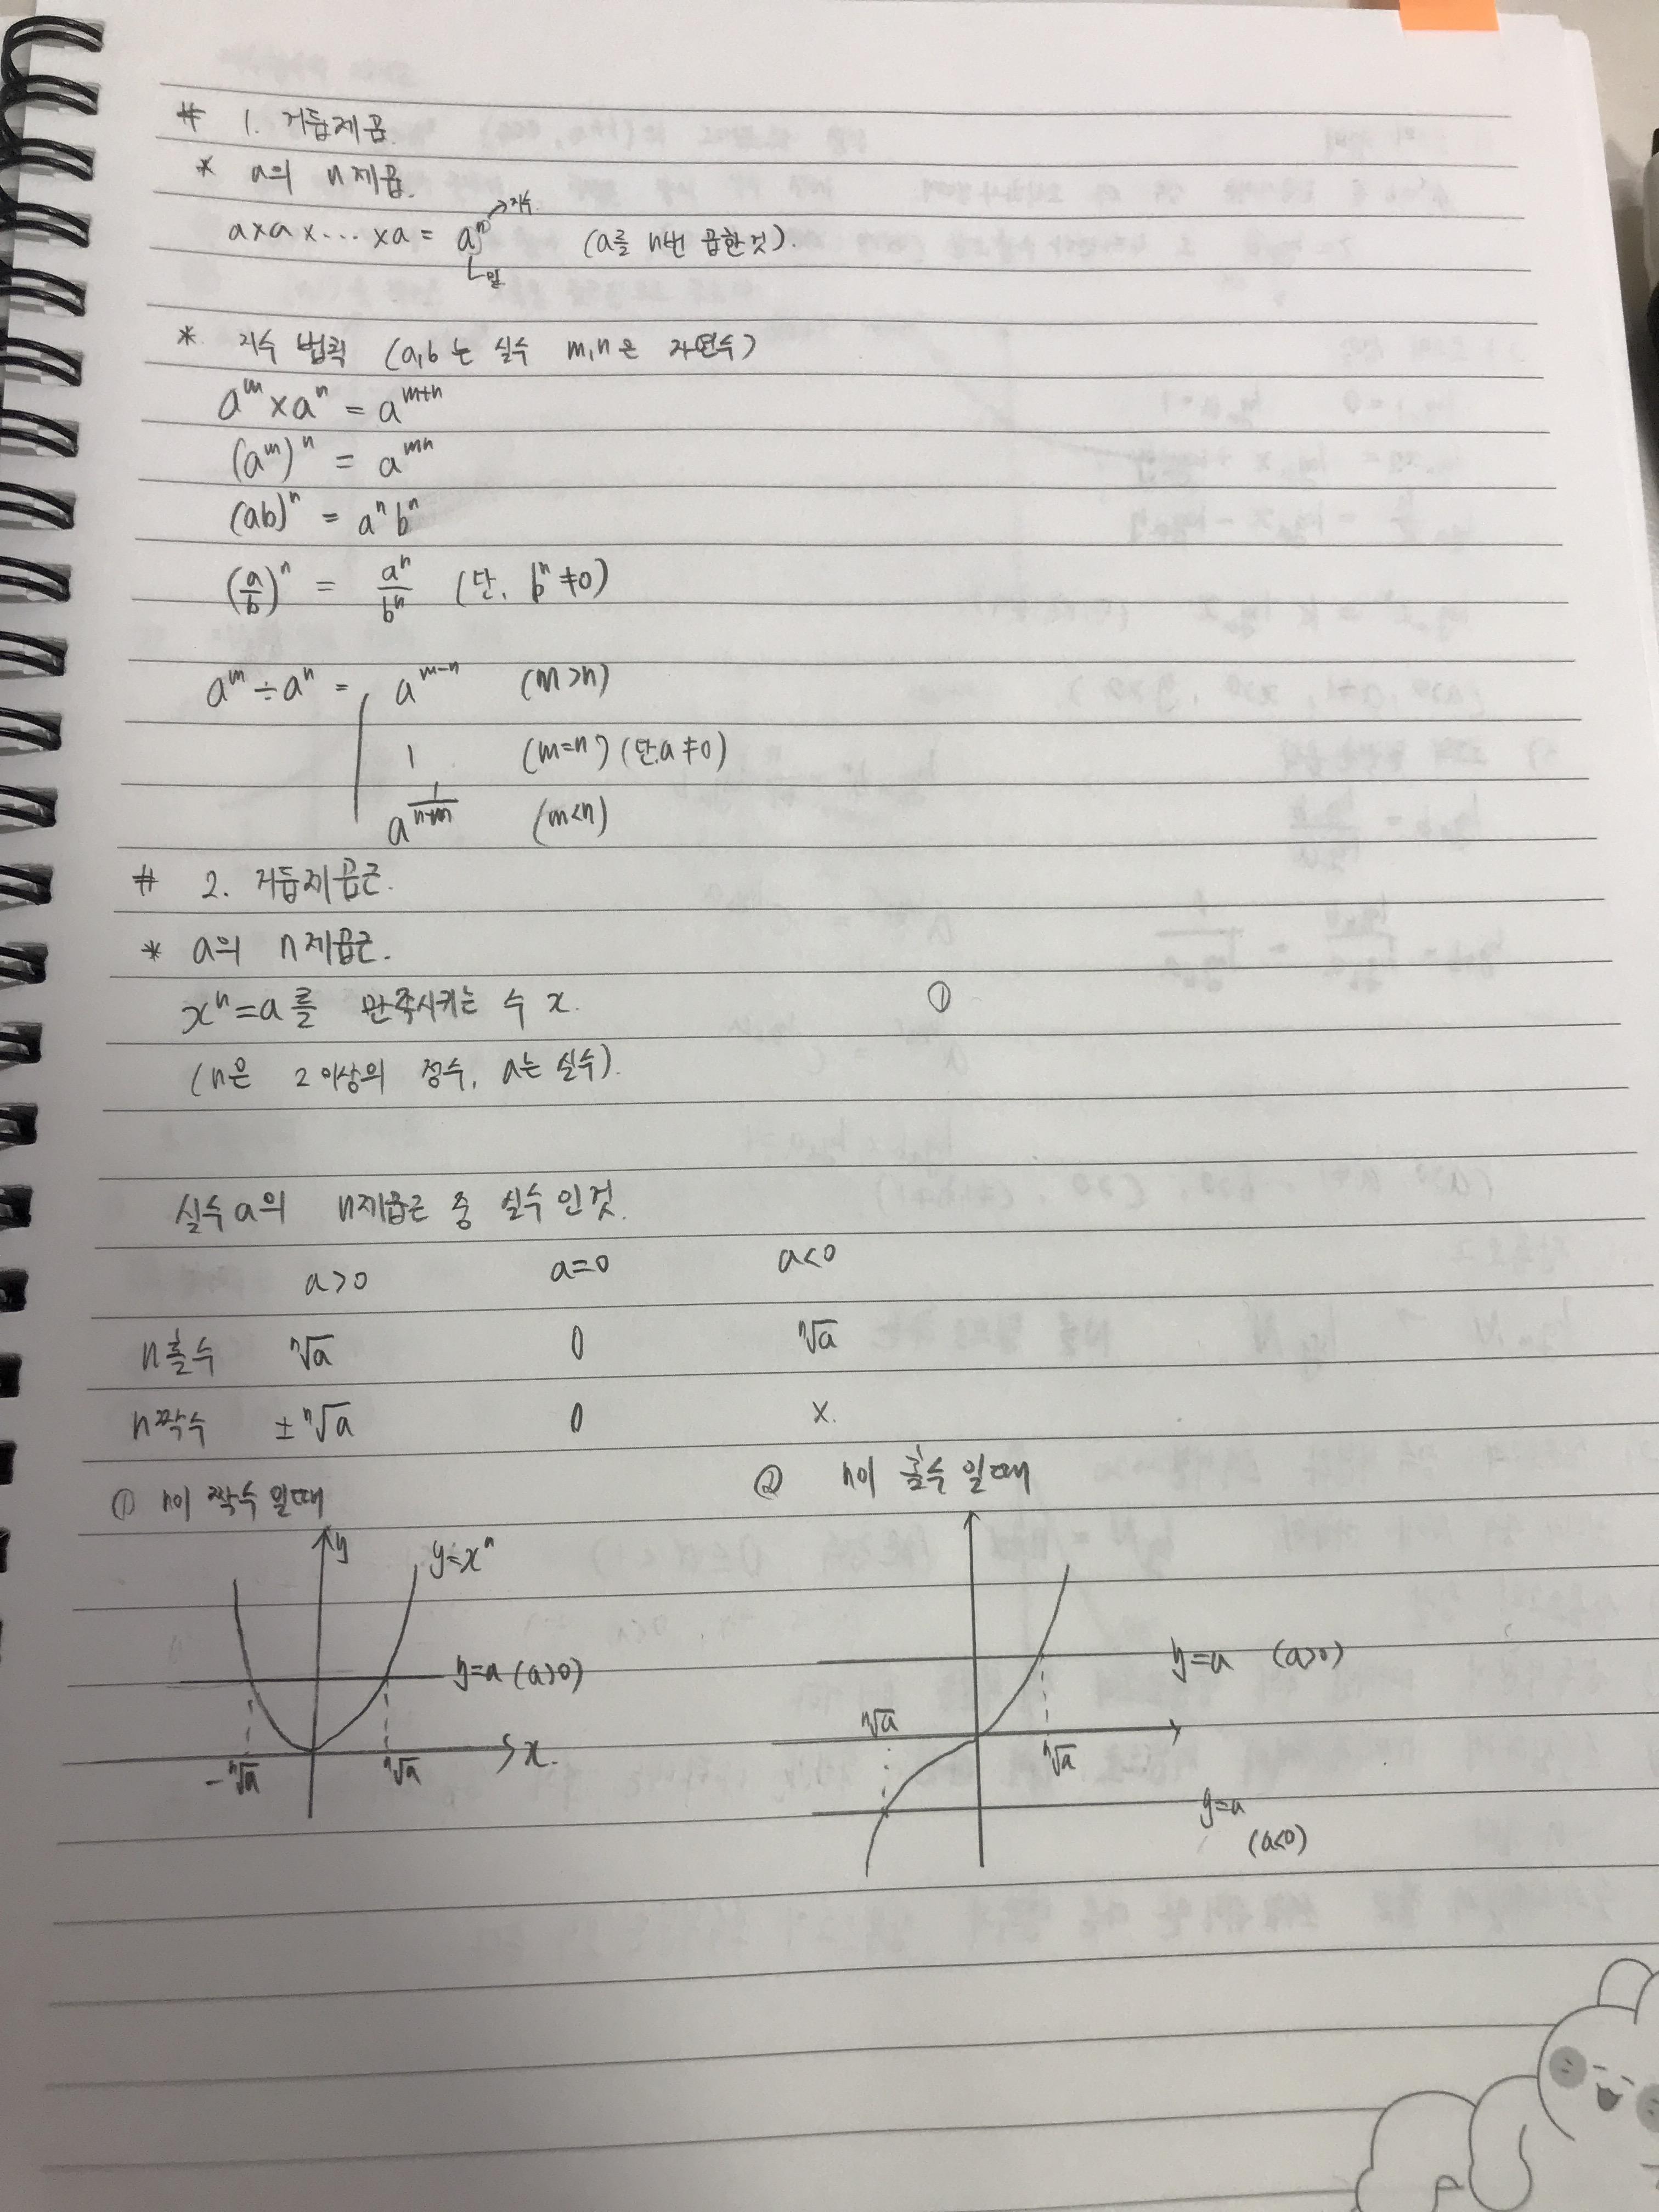 # 1. 거듭제곱.
* a의 n제곱.
a×a×...×a = aⁿ (a를 n번 곱한 것).
지수
밑
* 지수 법칙 (a,b는 실수 m,n은 자연수)
aᵐ×aⁿ = aᵐ⁺ⁿ
(aᵐ)ⁿ = aᵐⁿ
(ab)ⁿ = aⁿbⁿ
(a/b)ⁿ = aⁿ/bⁿ (단, bⁿ≠0)
aᵐ÷aⁿ = aᵐ⁻ⁿ (m>n)
1 (m=n) (단,a≠0)
a^(1/(n-m)) (m<n)
# 2. 거듭제곱근.
* a의 n제곱근.
xⁿ=a를 만족시키는 수 x. ①
(n은 2이상의 정수, a는 실수).
실수 a의 n제곱근 중 실수인것.
a>0 a=0 a<0
n홀수 ⁿ√a 0 ⁿ√a
n짝수 ±ⁿ√a 0 x.
① n이 짝수일때 ② n이 홀수일때
y
y=xⁿ
y=a (a>0) y=a (a>0)
ⁿ√a
x.
-ⁿ√a ⁿ√a ⁿ√a
y=a
(a<0)